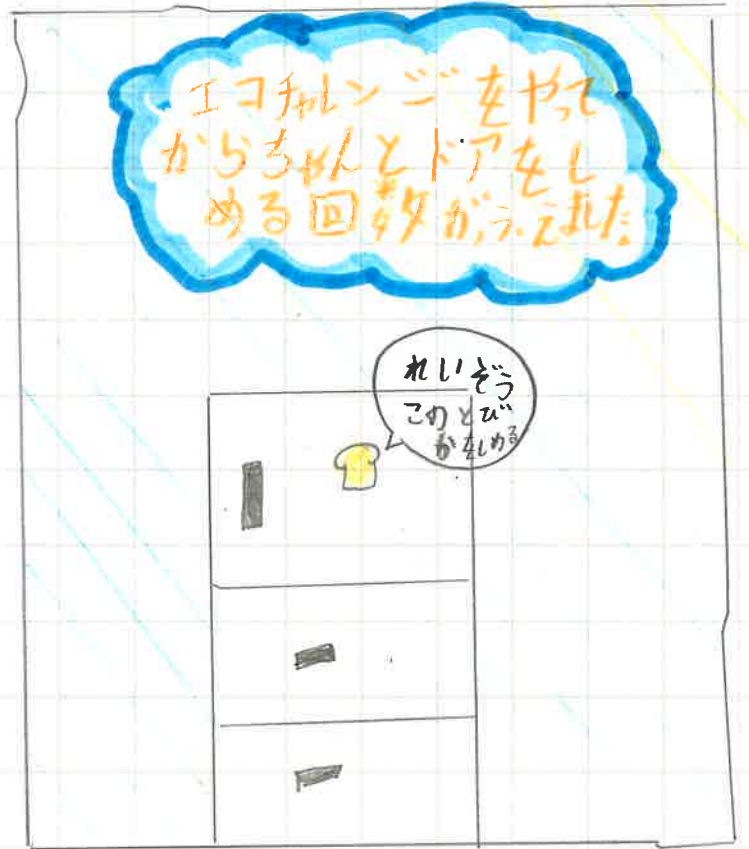 エコチャレンジをやって
からちゃんとドアをし
める回数がふえました。
れいぞう
このとび
らをしめる